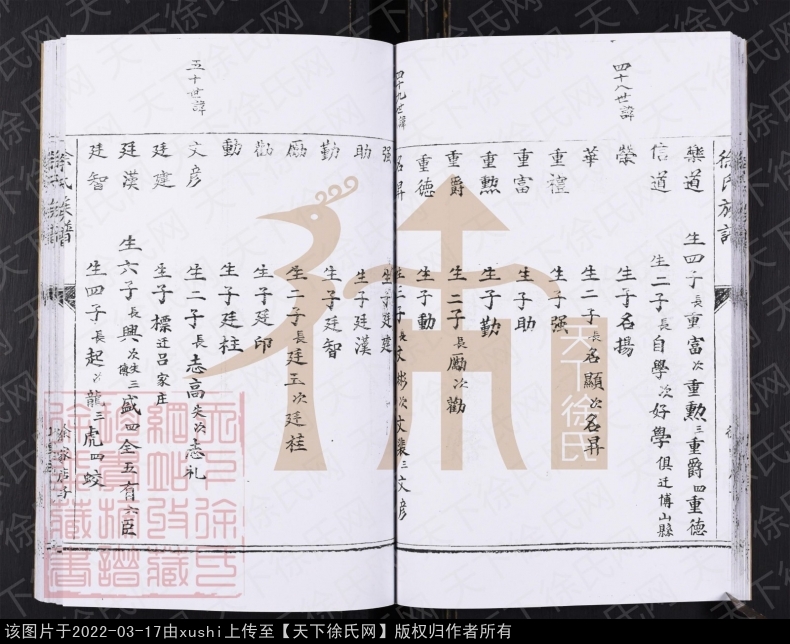 徐氏族譜
四十八世諱
樂道 生四子長重富次重勲三重爵四重德
信道 生二子長自學次好學俱迁博山縣
榮 生子名揚
華 生二子長名顯次名昇
重禮 生子强
重富 生子助
重勲 生子勤
重爵 生二子長勵次勸
重德 生子動
四十九世諱
名昇 生三子長文彬次文集三文彦
强 生子廷建
助 生子廷漢
勤 生子廷智
勵 生二子長廷玉次廷桂
勸 生子廷印
動 生子廷柱
五十世諱
文彦 生二子長志高次志礼
廷建 生子標迁吕家庄
廷漢 生六子長興次三盛四全五有六臣
廷智 生四子長起次龍三虎四蛟
徐氏族譜
天下徐氏
天下徐氏网
该图片于2022-03-17由xushi上传至【天下徐氏网】版权归作者所有